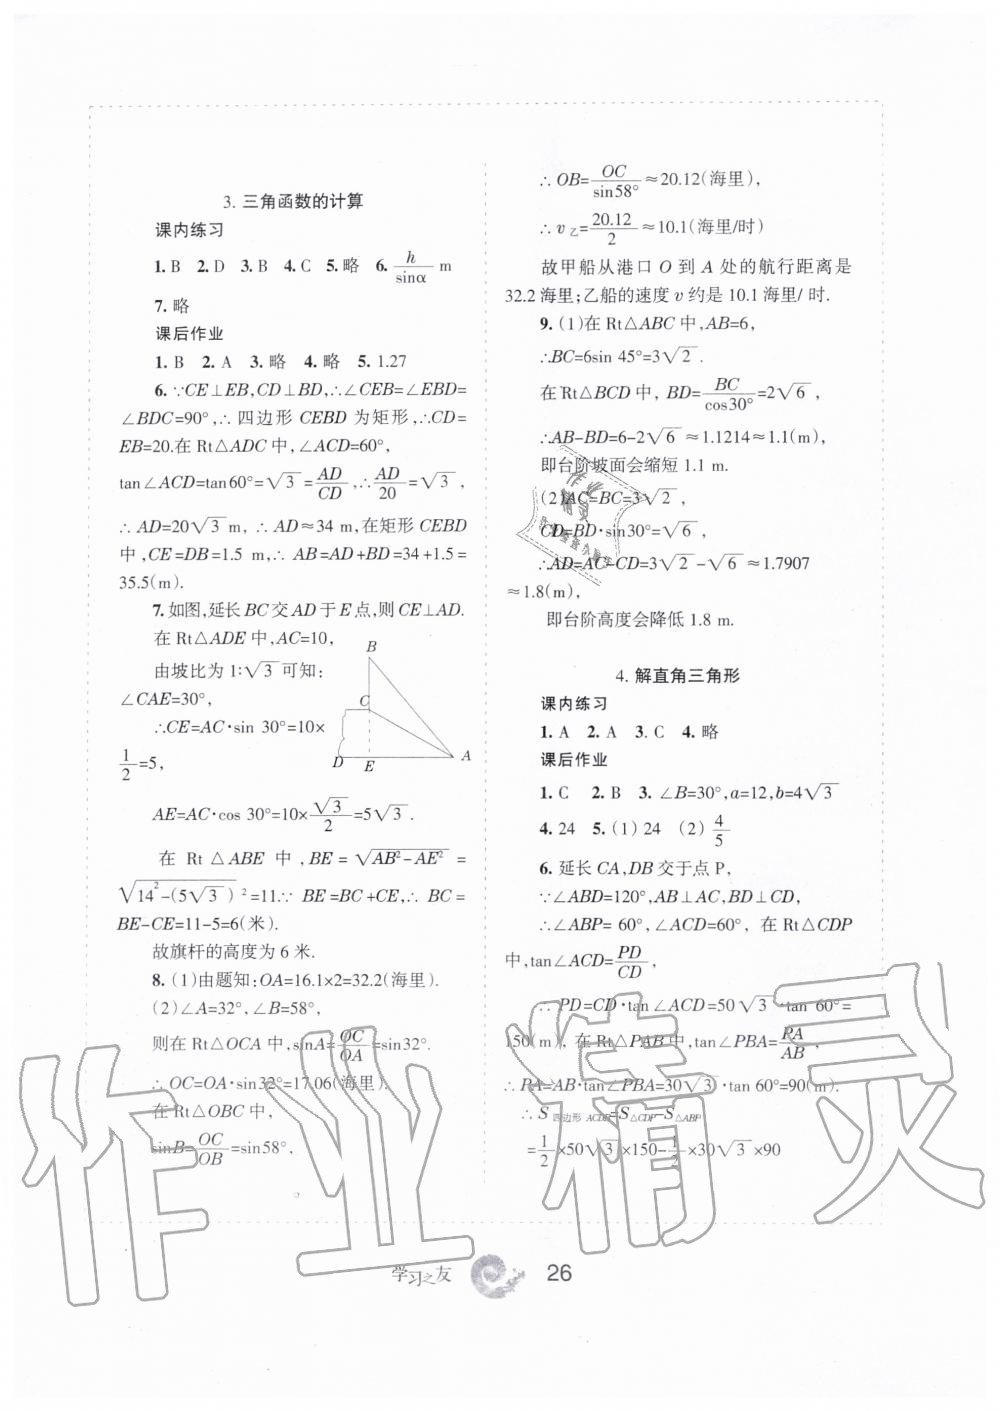 3. 三角函数的计算
课内练习
1. B 2. D 3. B 4. C 5. 略 6. h/sinα m
7. 略
课后作业
1. B 2. A 3. 略 4. 略 5. 1.27
6. ∵CE⊥EB,CD⊥BD,∴∠CEB=∠EBD=
∠BDC=90°,∴四边形 CEBD 为矩形,∴CD=
EB=20.在 Rt△ADC 中,∠ACD=60°,
tan∠ACD=tan60°=√3=AD/CD,∴AD/20=√3,
∴AD=20√3 m, ∴AD≈34 m,在矩形 CEBD
中,CE=DB=1.5 m,∴ AB=AD+BD=34+1.5=
35.5(m).
7. 如图,延长 BC 交 AD 于 E 点,则 CE⊥AD.
在 Rt△ADE 中,AC=10,
由坡比为 1:√3 可知:
∠CAE=30°,
∴CE=AC·sin 30°=10×
1/2=5,
B
C
D E A
AE=AC·cos 30°=10×√3/2=5√3.
在 Rt △ABE 中,BE=√(AB²-AE²) =
√(14²-(5√3)²)=11.∵ BE=BC+CE,∴ BC=
BE-CE=11-5=6(米).
故旗杆的高度为 6 米.
8. (1)由题知:OA=16.1×2=32.2(海里).
(2)∠A=32°,∠B=58°,
则在 Rt△OCA 中,sinA=OC/OA=sin32°.
∴OC=OA·sin32°=17.06(海里).
在 Rt△OBC 中,
sinB=OC/OB=sin58°,
∴OB=OC/sin58°≈20.12(海里),
∴v乙=20.12/2≈10.1(海里/时)
故甲船从港口 O 到 A 处的航行距离是
32.2 海里;乙船的速度 v 约是 10.1 海里/ 时.
9. (1)在 Rt△ABC 中,AB=6,
∴BC=6sin 45°=3√2.
在 Rt△BCD 中, BD=BC/cos30°=2√6,
∴AB-BD=6-2√6≈1.1214≈1.1(m),
即台阶坡面会缩短 1.1 m.
(2)AC=BC=3√2,
CD=BD·sin30°=√6,
∴AD=AC-CD=3√2-√6≈1.7907
≈1.8(m),
即台阶高度会降低 1.8 m.
4. 解直角三角形
课内练习
1. A 2. A 3. C 4. 略
课后作业
1. C 2. B 3. ∠B=30°,a=12,b=4√3
4. 24 5. (1) 24 (2) 4/5
6. 延长 CA,DB 交于点 P,
∵∠ABD=120°,AB⊥AC,BD⊥CD,
∴∠ABP= 60°,∠ACD=60°, 在 Rt△CDP
中,tan∠ACD=PD/CD,
∴ PD=CD·tan∠ACD=50√3·tan 60°=
150(m), 在 Rt△PAB 中,tan∠PBA=PA/AB,
∴PA=AB·tan∠PBA=30√3·tan 60°=90(m).
∴S四边形 ACDB=S△CDP-S△ABP
=1/2×50√3×150-1/2×30√3×90
学习之友 26
作业精灵